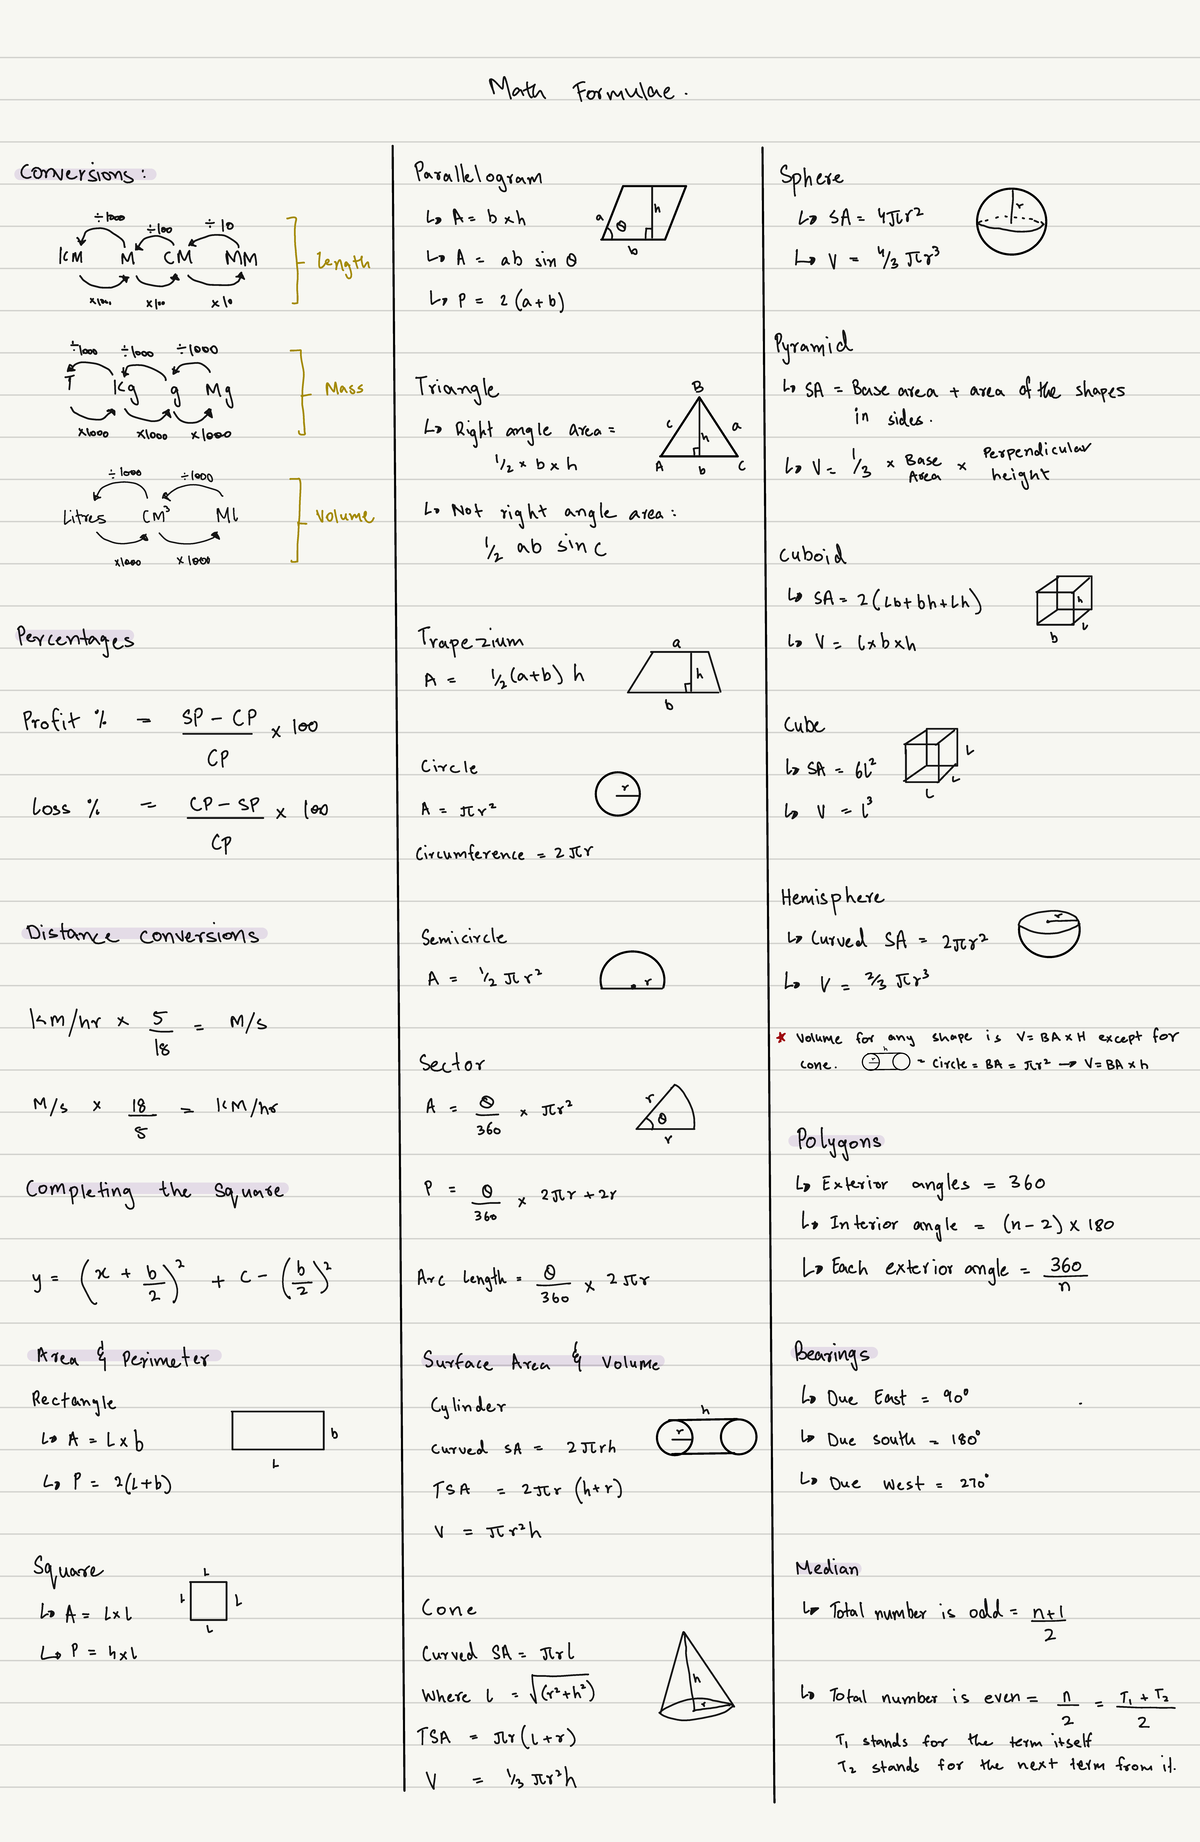 Math Formulae.
Conversions:
÷1000 ÷100 ÷10
KM M CM MM
x1000 x100 x10
Length
÷1000 ÷1000 ÷1000
T Kg g Mg
x1000 x1000 x1000
Mass
÷1000 ÷1000
Litres CM³ Ml
x1000 x1000
Volume
Percentages
Profit % = SP - CP / CP x 100
Loss % = CP - SP / CP x 100
Distance conversions
km/hr x 5/18 = M/s
M/s x 18/5 = KM/hr
Completing the square
y = (x + b/2)² + c - (b/2)²
Area & Perimeter
Rectangle
↳ A = L x b
↳ P = 2(L+b)
b
L
Square
↳ A = L x L
↳ P = 4 x L
L
L L
L
Parallelogram
↳ A = b x h
↳ A = ab sin θ
↳ P = 2(a+b)
a θ h
b
Triangle
↳ Right angle area =
1/2 x b x h
↳ Not right angle area:
1/2 ab sin C
B
c h a
A b C
Trapezium
A = 1/2 (a+b) h
a
h
b
Circle
A = πr²
Circumference = 2πr
r
Semicircle
A = 1/2 πr²
r
Sector
A = θ/360 x πr²
P = θ/360 x 2πr + 2r
Arc Length = θ/360 x 2πr
r θ
r
Surface Area & Volume
Cylinder
Curved SA = 2πrh
TSA = 2πr (h+r)
V = πr²h
h
r
Cone
Curved SA = πrL
Where L = √(r²+h²)
TSA = πr(L+r)
V = 1/3 πr²h
h
r
Sphere
↳ SA = 4πr²
↳ V = 4/3 πr³
r
Pyramid
↳ SA = Base area + area of the shapes
in sides.
↳ V = 1/3 x Base Area x Perpendicular height
Cuboid
↳ SA = 2(Lb+bh+Lh)
↳ V = L x b x h
h
b L
Cube
↳ SA = 6L²
↳ V = L³
L
L
L
Hemisphere
↳ Curved SA = 2πr²
↳ V = 2/3 πr³
r
* Volume for any shape is V=BA x H except for
cone. h r - Circle = BA = πr² → V=BA x h
Polygons
↳ Exterior angles = 360
↳ Interior angle = (n-2) x 180
↳ Each exterior angle = 360/n
Bearings
↳ Due East = 90°
↳ Due south = 180°
↳ Due west = 270°
Median
↳ Total number is odd = n+1/2
↳ Total number is even = n/2 = T₁ + T₂/2
T₁ stands for the term itself
T₂ stands for the next term from it.